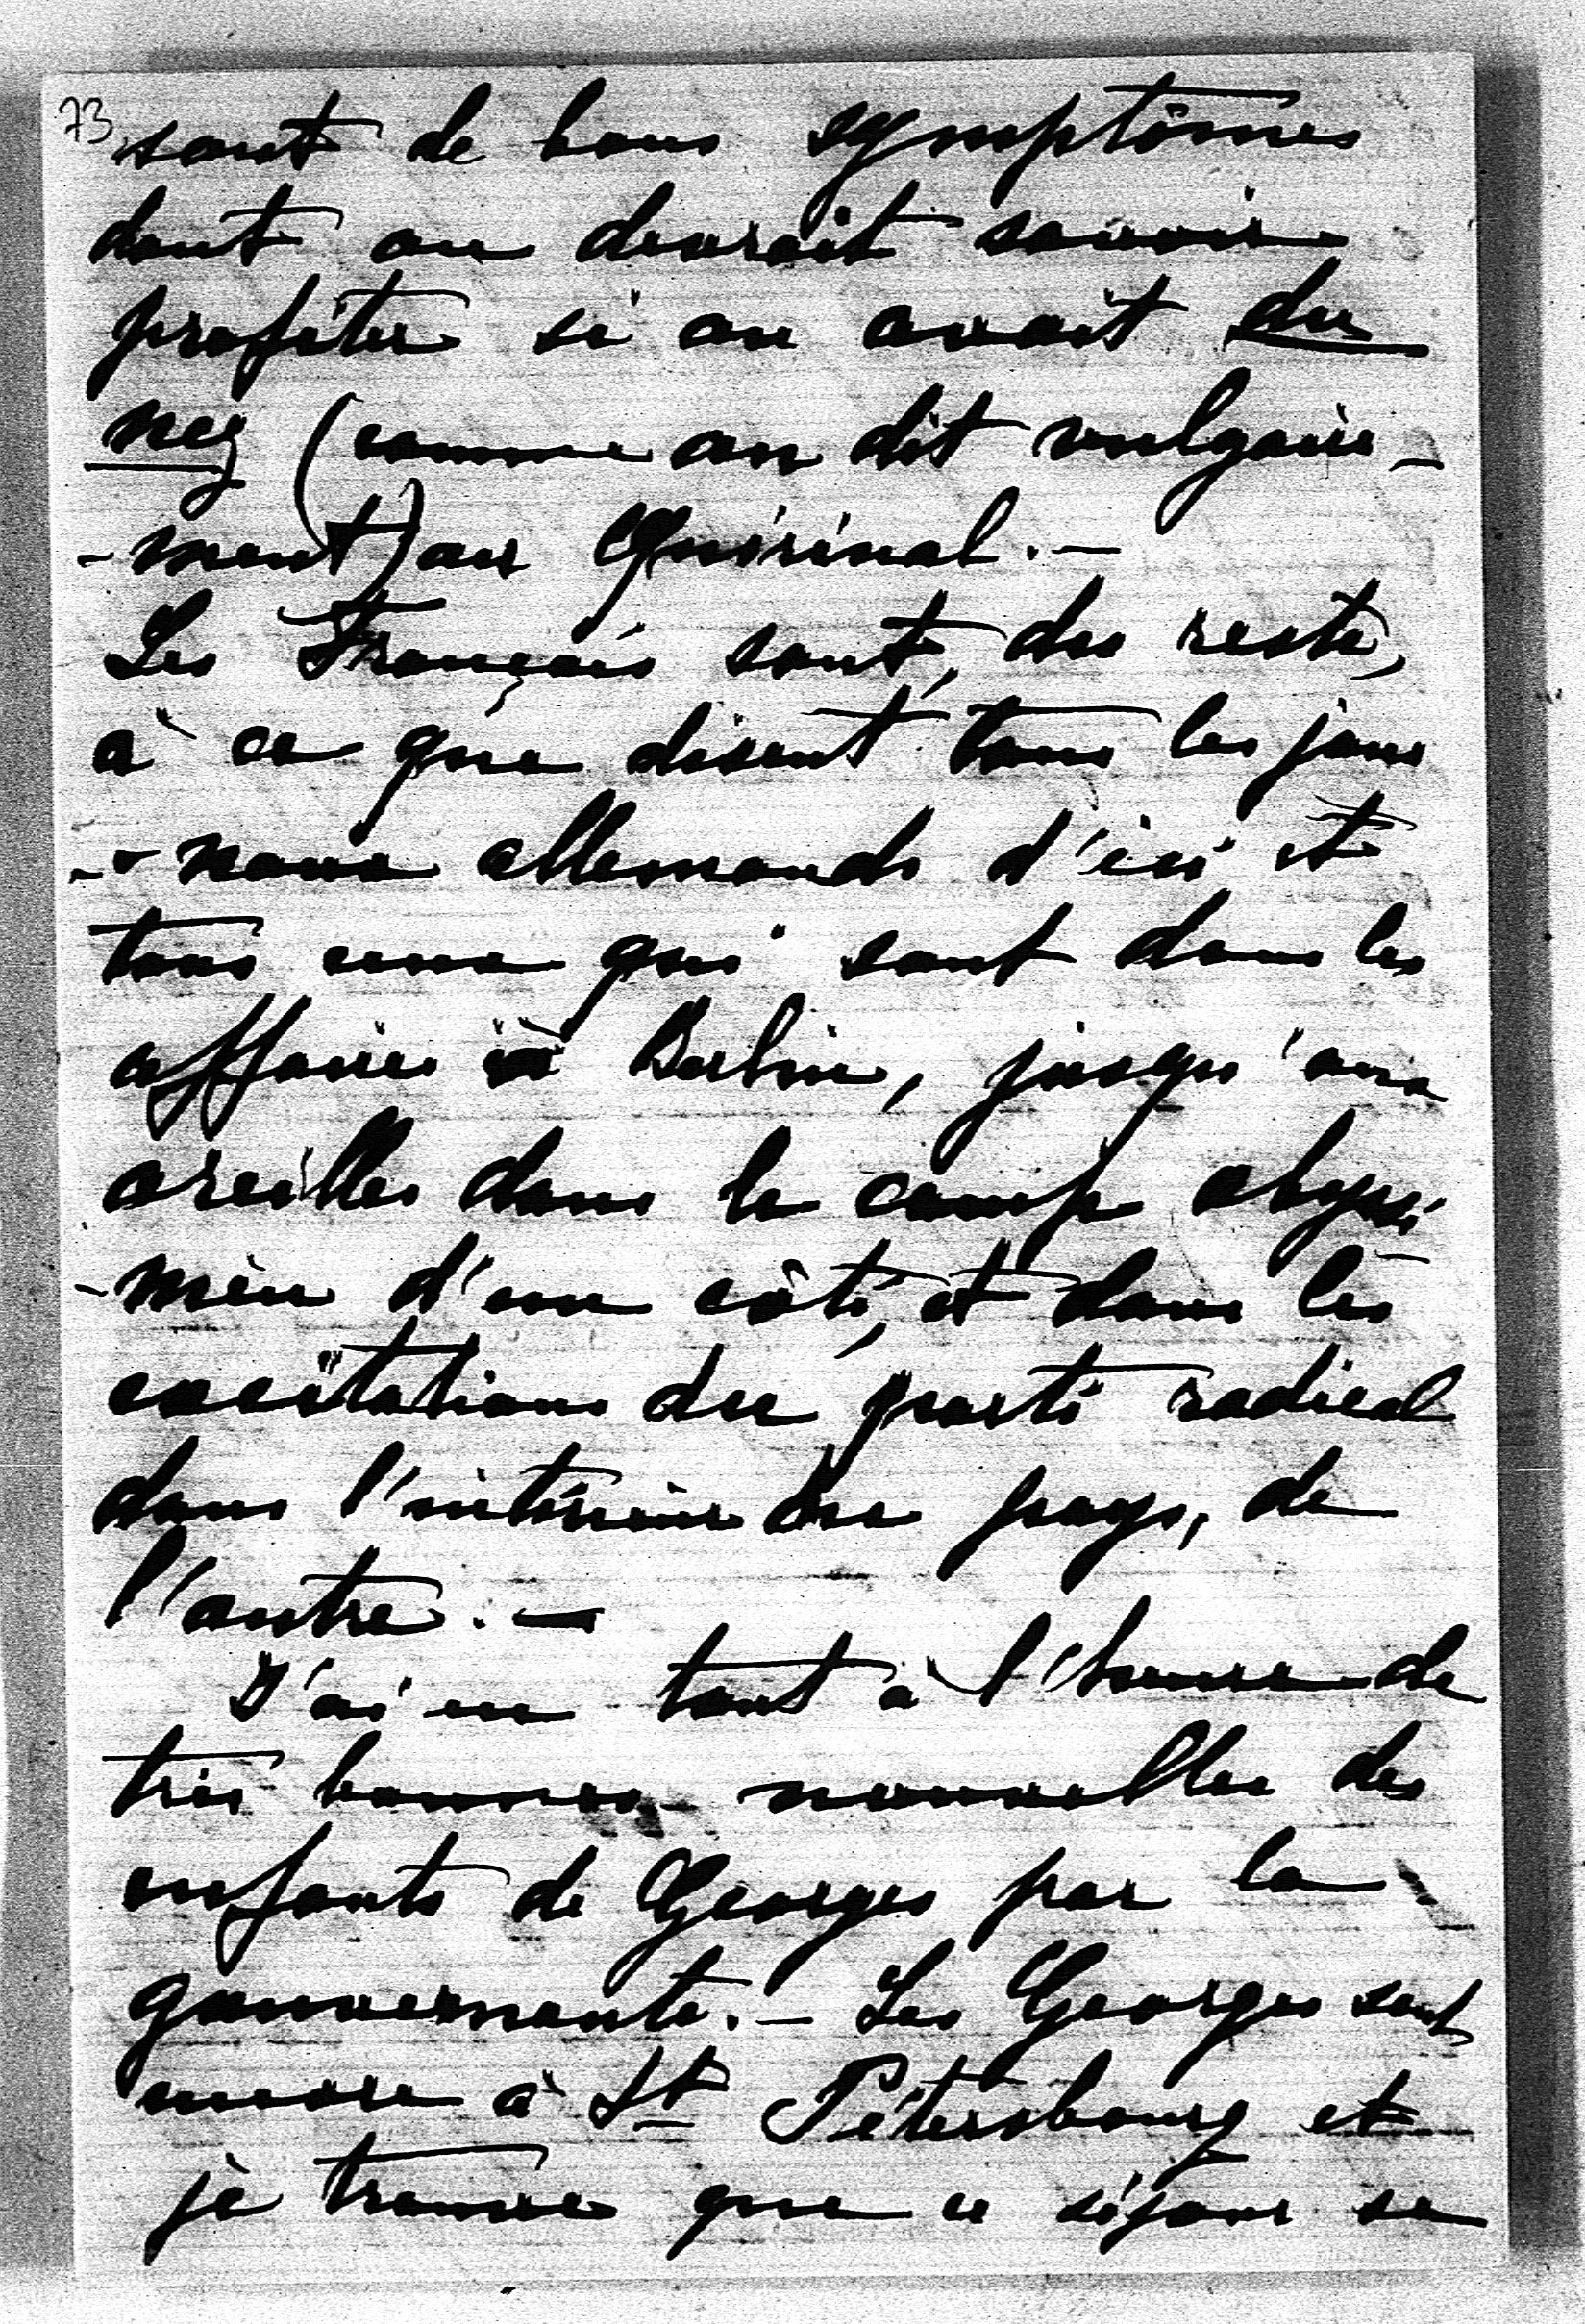 73
sont de bons symptômes
dont on devrait savoir
profiter si on avait du
nez (comme on dit vulgaire-
-ment) au Quirinal. —
Les Français sont, du reste,
à ce que disent tous les jour
-naux allemands d'ici et
tous ceux qui sont dans les
affaires à Berlin, jusqu'aux
oreilles dans le camp abyssi
-nien d'un côté, et dans les
excitations du parti radical
dans l'intérieur du pays, de
l'autre. —
J'ai eu tout à l'heure de
très bonnes nouvelles des
enfants de Georges par la
gouvernante. — Les Georges sont
encore à St Pétersbourg et
je trouve que ce séjour se